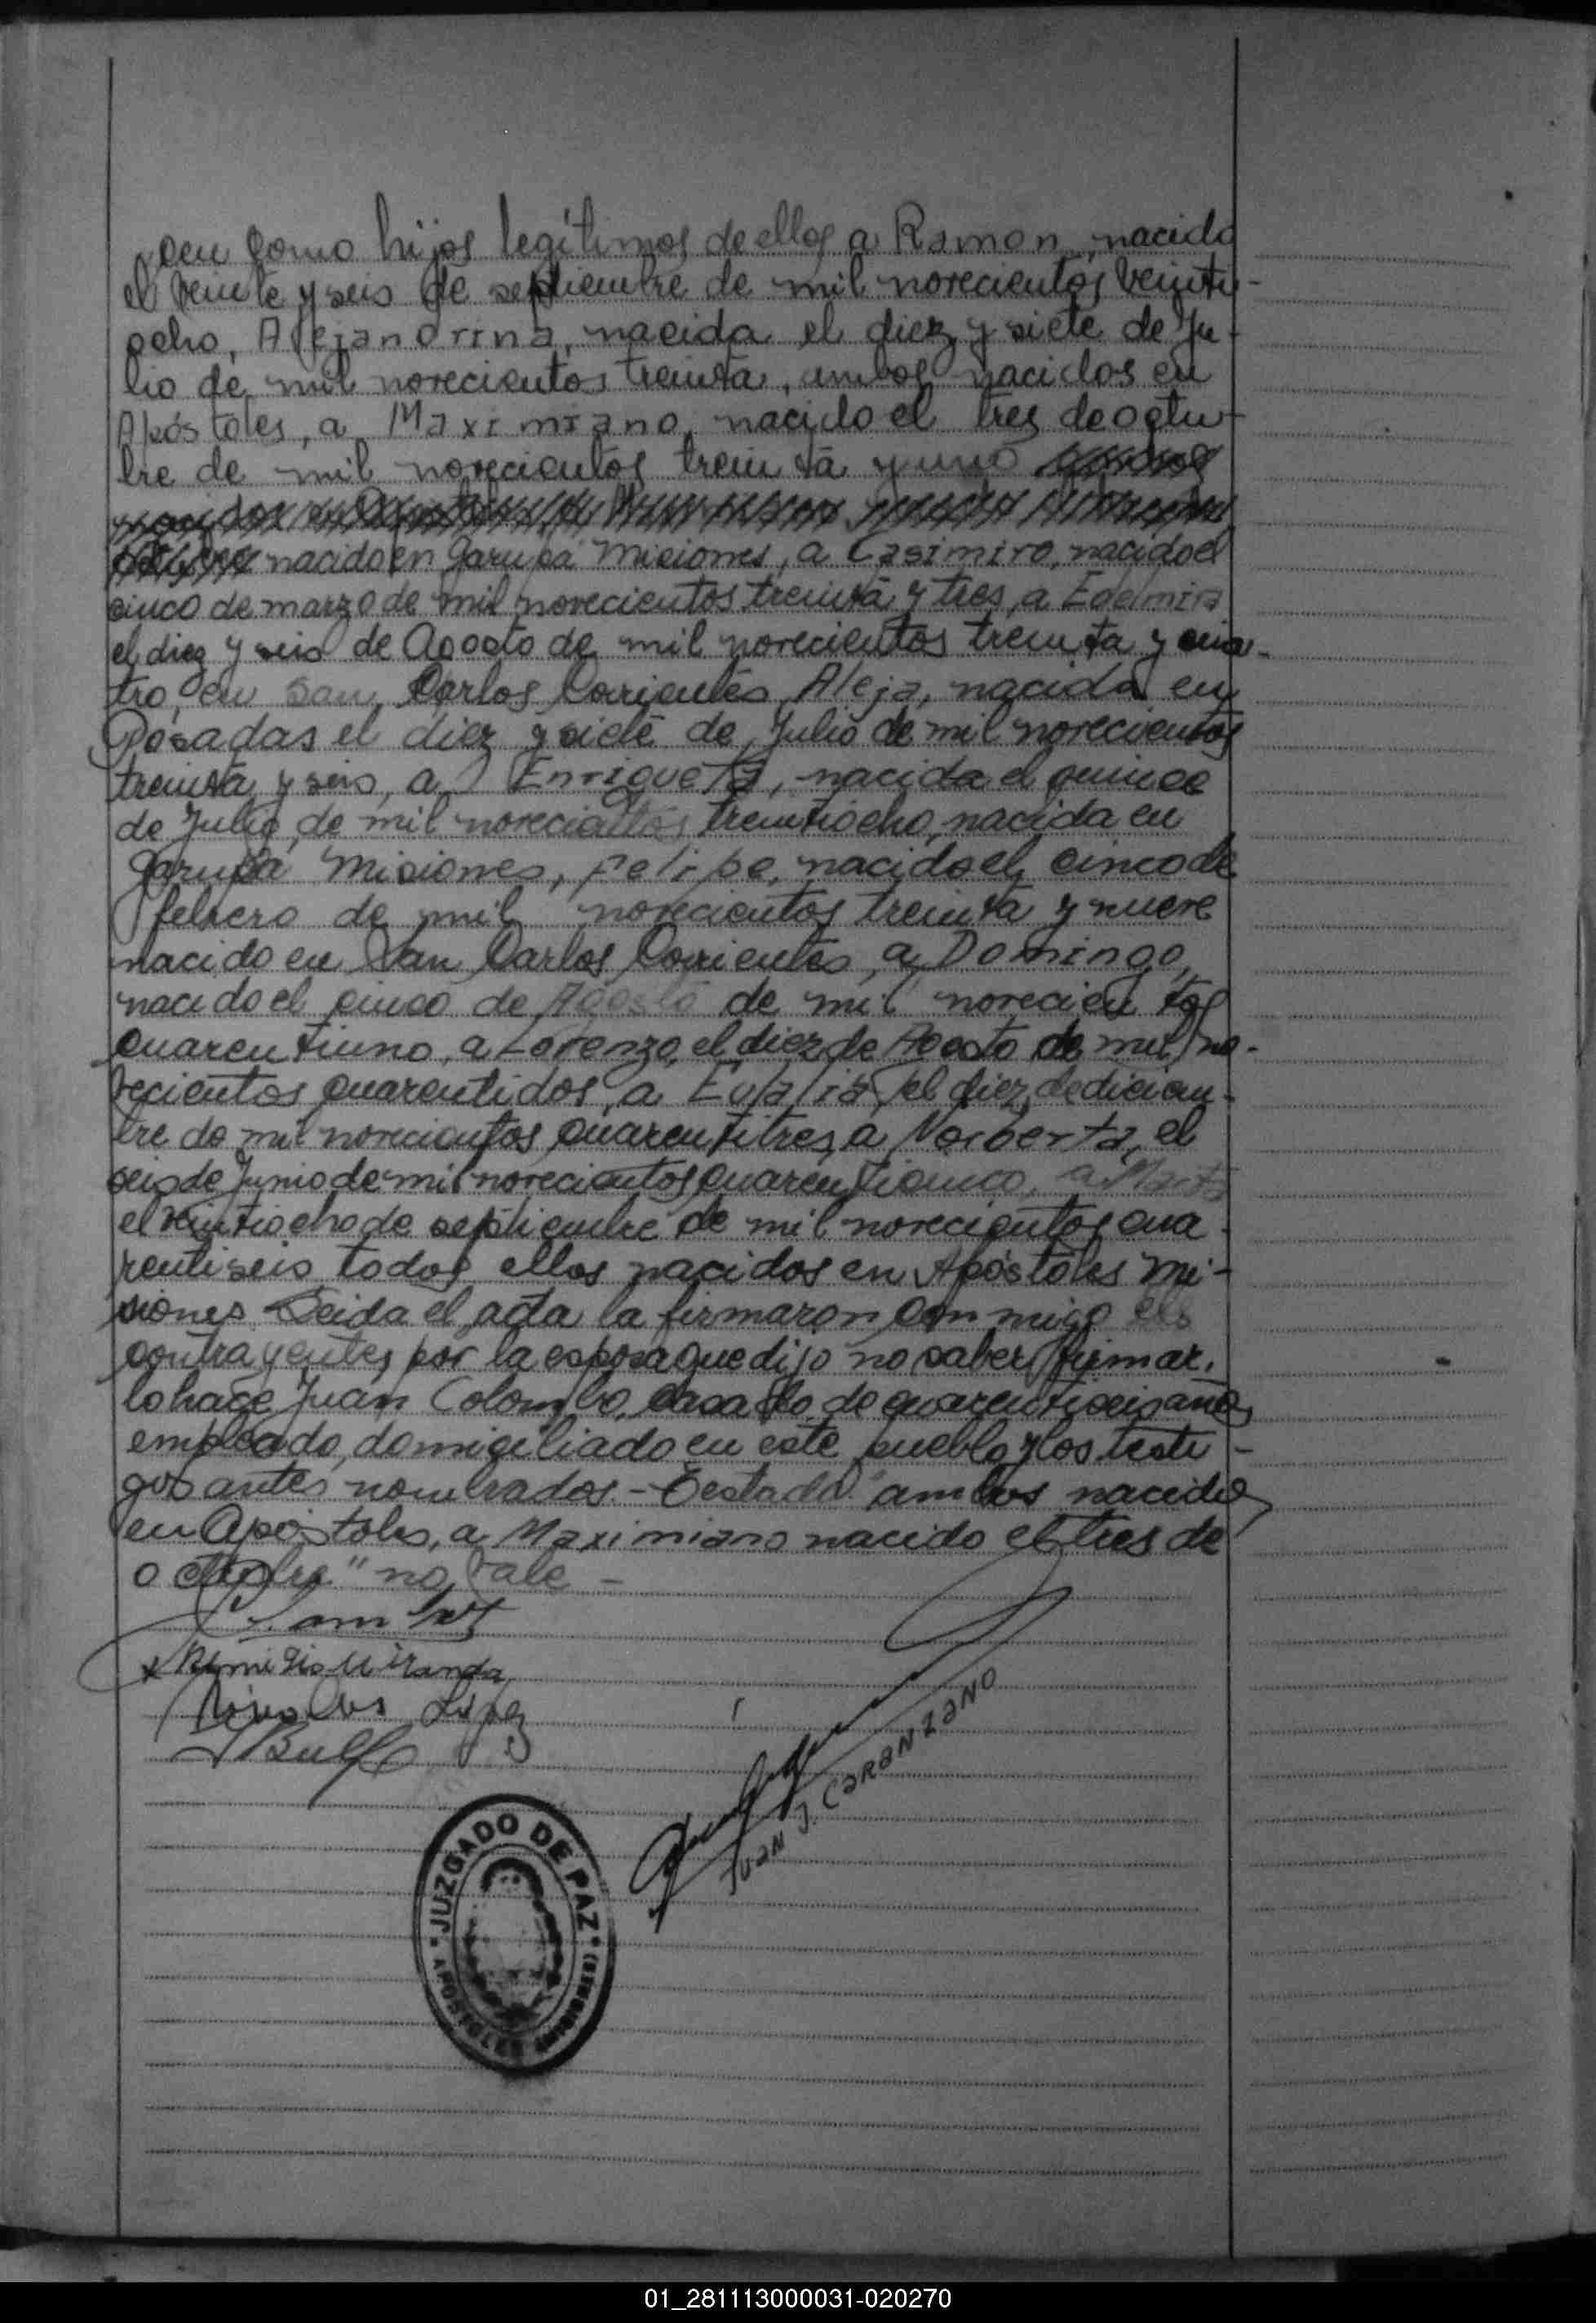 cen como hijos legítimos de ellos a Ramon, nacido
el veinte y seis de septiembre de mil novecientos veinti-
ocho, Alejandrina, nacida el diez y siete de Ju-
lio de mil novecientos treinta, ambos nacidos en
Apóstoles, a Maximiano, nacido el tres de octu-
bre de mil novecientos treinta y uno
nacido en Garupá Misiones, a Casimiro, nacido el
cinco de marzo de mil novecientos treinta y tres, a Edelmira
el diez y seis de Agosto de mil novecientos treinta y cua-
tro, en San Carlos Corrientes, Aleja, nacida en
Posadas el diez y siete de Julio de mil novecientos
treinta y seis, a Enriqueta, nacida el quince
de Julio, de mil novecientos treintiocho, nacida en
Garupá Misiones, Felipe, nacido el cinco de
febrero de mil novecientos treinta y nueve
nacido en San Carlos Corrientes, a Domingo,
nacido el cinco de Agosto de mil novecientos
cuarentiuno, a Lorenzo, el diez de Agosto de mil no-
vecientos cuarentidos, a Eulalia, el diez de diciem-
bre de mil novecientos cuarentitres, a Norberta, el
seis de Junio de mil novecientos cuarenticinco, a Marta
el veintiocho de septiembre de mil novecientos cua-
rentiseis todos ellos nacidos en Apóstoles Mi-
siones. Leida el acta la firmaron conmigo els
contrayentes, por la esposa que dijo no saber firmar,
lo hace Juan Colombo, casado, de cuarentiseis años
empleado, domiciliado en este pueblo y los testi-
gos antes nombrados.- Testado "ambos nacidos
en Apóstoles, a Maximiano nacido el tres de
octubre" no vale -
Remigio Miranda
Nicolas Lopez
JUAN J. CARANZANO
JUZGADO DE PAZ
APOSTOLES (MISIONES)
01_281113000031-020270